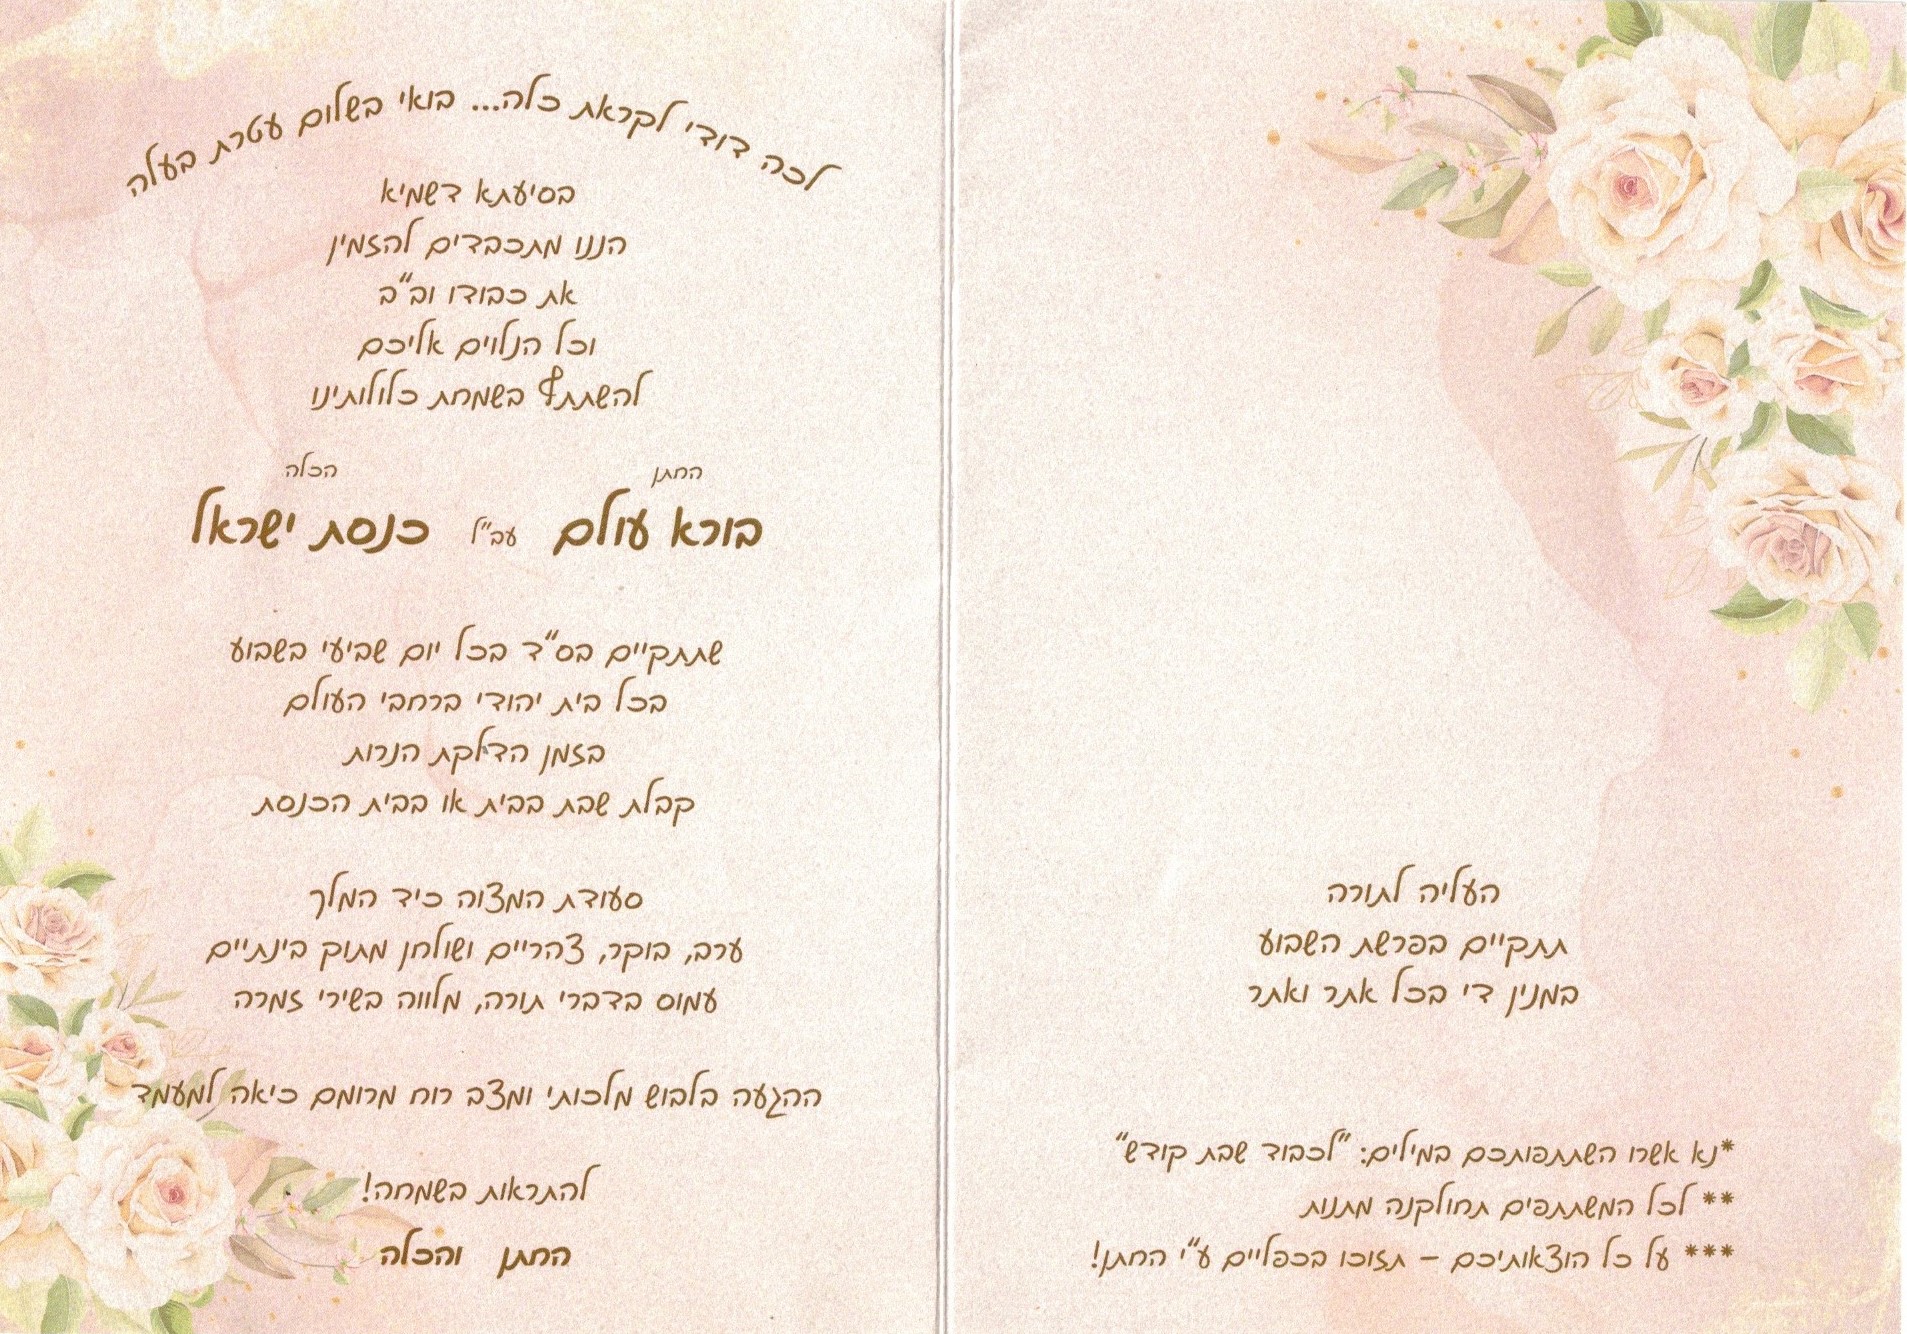 לכה דודי לקראת כלה... בואי בשלום עטרת בעלה
בסיעתא דשמיא
הננו מתכבדים להזמין
את כבודו וב"ב
וכל הנלוים אליכם
להשתתף בשמחת כלולותינו
החתן
הכלה
בורא עולם עב"ל כנסת ישראל
שתתקיים בס"ד בכל יום שביעי בשבוע
בכל בית יהודי ברחבי העולם
בזמן הדלקת הנרות
קבלת שבת בבית או בבית הכנסת
סעודת המצוה כיד המלך
ערב, בוקר, צהריים ושולחן מתוק בינתיים
עמוס בדברי תורה, מלווה בשירי זמרה
ההגעה בלבוש מלכותי ומצב רוח מרומם כיאה למעמד
להתראות בשמחה!
החתן והכלה
העליה לתורה
תתקיים בפרשת השבוע
במנין די בכל אתר ואתר
*נא אשרו השתתפותכם במילים: "לכבוד שבת קודש"
** לכל המשתתפים תחולקנה מתנות
*** על כל הוצאותיכם – תזוכו בכפליים ע"י החתן!